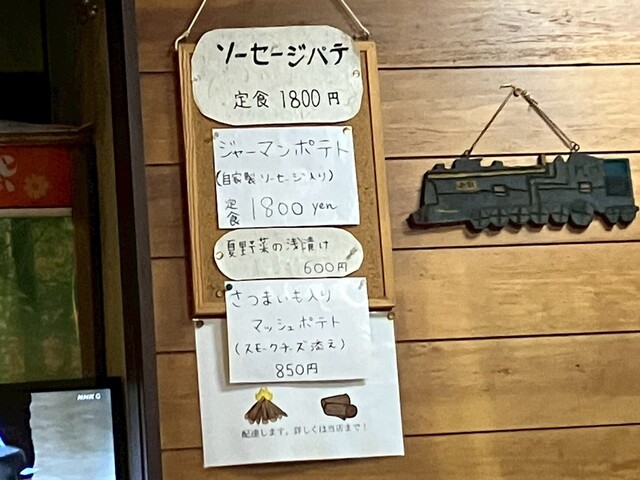 ソーセージパテ
定食 1800円
ジャーマンポテト
(自家製ソーセージ入り)
定食 1800 yen
夏野菜の浅漬け
600円
さつまいも入り
マッシュポテト
(スモークチーズ添え)
850円
配達します。詳しくは当店まで！
NHK G